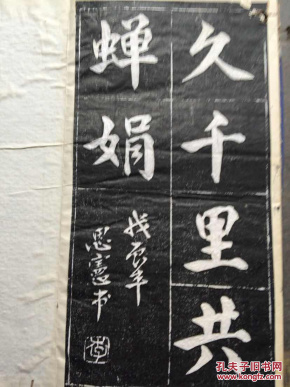 久千里共
蝉娟
戊辰年
思宪书
孔夫子旧书网